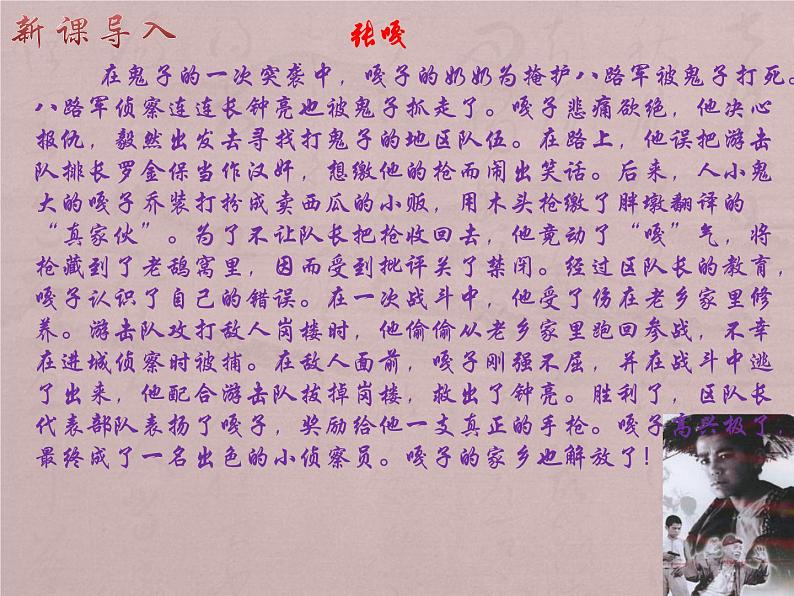 新课导入
张嘎
在鬼子的一次突袭中，嘎子的奶奶为掩护八路军被鬼子打死。
八路军侦察连连长钟亮也被鬼子抓走了。嘎子悲痛欲绝，他决心
报仇，毅然出发去寻找打鬼子的地区队伍。在路上，他误把游击
队排长罗金保当作汉奸，想缴他的枪而闹出笑话。后来，人小鬼
大的嘎子乔装打扮成卖西瓜的小贩，用木头枪缴了胖墩翻译的
“真家伙”。为了不让队长把枪收回去，他竟动了“嘎”气，将
枪藏到了老鸹窝里，因而受到批评关了禁闭。经过区队长的教育，
嘎子认识了自己的错误。在一次战斗中，他受了伤在老乡家里修
养。游击队攻打敌人岗楼时，他偷偷从老乡家里跑回参战，不幸
在进城侦察时被捕。在敌人面前，嘎子刚强不屈，并在战斗中逃
了出来，他配合游击队拔掉岗楼，救出了钟亮。胜利了，区队长
代表部队表扬了嘎子，奖励给他一支真正的手枪。嘎子高兴极了，
最终成了一名出色的小侦察员。嘎子的家乡也解放了！